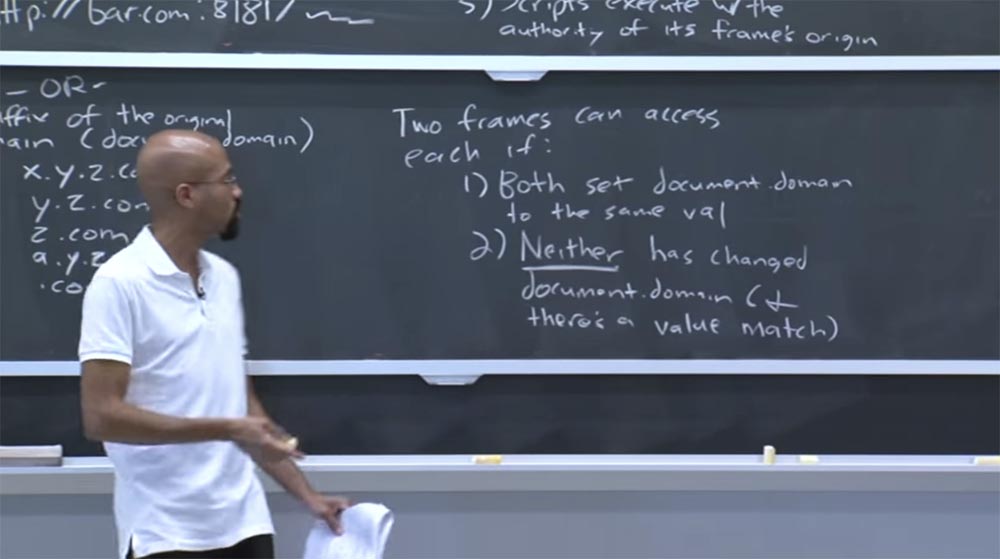 ttp://bar.com:8181/
3) Scripts execute w/ the
authority of its frame's origin
- OR -
uffix of the original
ain (docu domain)
x.y.z.co
y.z.com
z.com
a.y.z
.co
Two frames can access
each if:
1) Both set document.domain
to the same val
2) Neither has changed
document.domain (&
there's a value match)